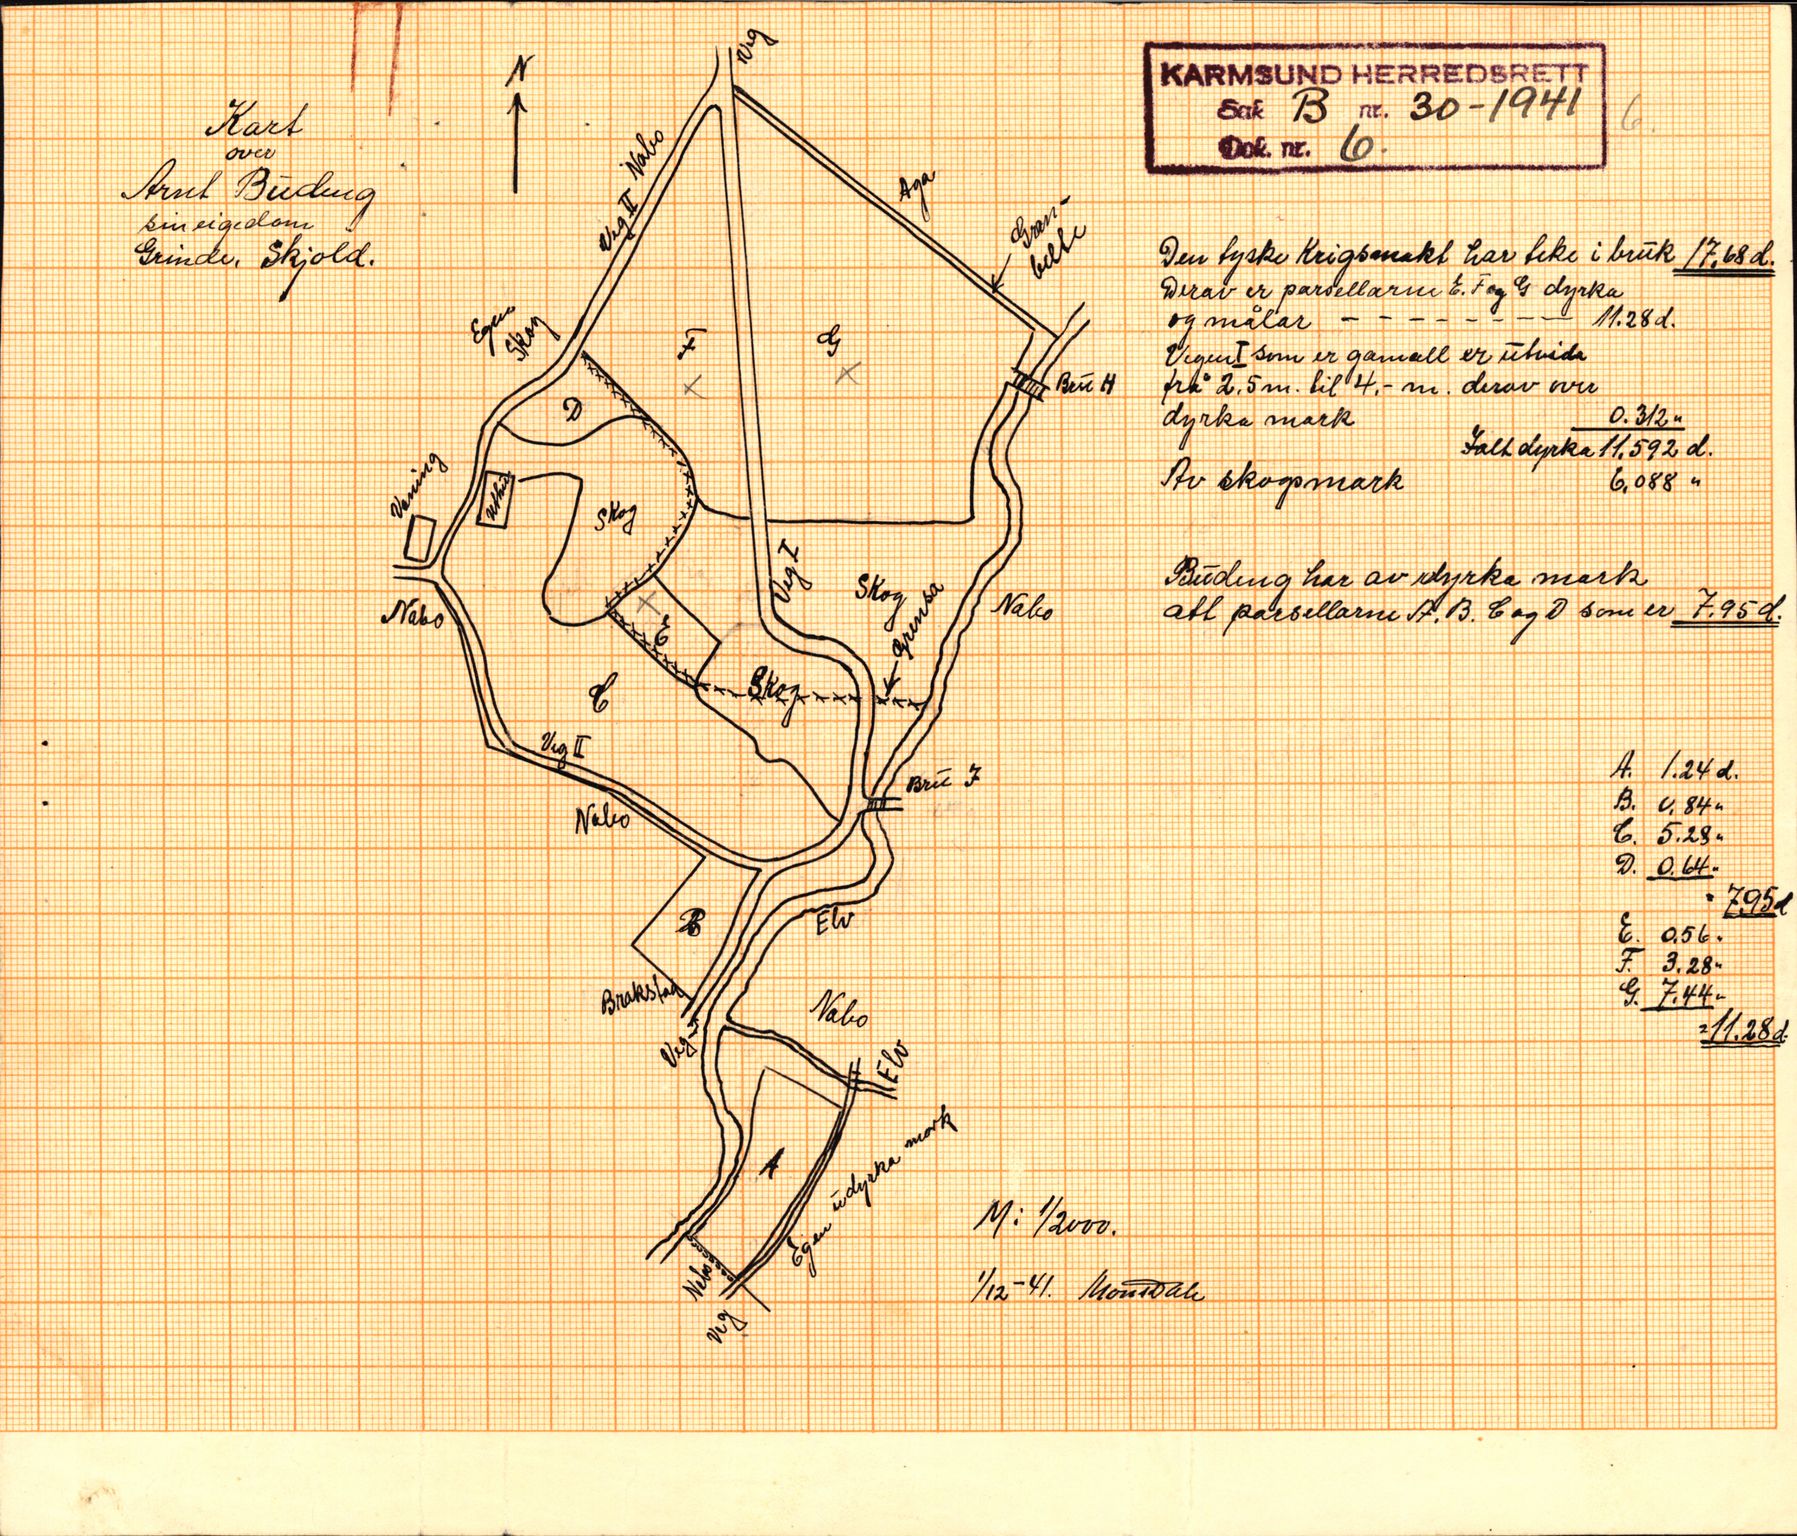 Kart
over
Arnt Büding
sin eigedom
Grinde, Skjold.
N
KARMSUND HERREDSRETT
Sak B nr. 30-1941
Dok. nr. 6.
6.
Den tyske Krigsmakt har teke i brük 17,68 d.
Derav er parsellarne E. F og G dyrka
og målar - - - - - - - - - 11.28 d.
Vegen I som er gamall er ütvida
frå 2,5 m. til 4,- m. derav over
dyrka mark 0.312 "
Ialt dyrka 11,592 d.
Av skogsmark 6,088 "
Büding har av dyrka mark
att parsellarne A, B. C og D som er 7.95 d.
A. 1.24 d.
B. 0,84 "
C. 5.23 "
D. 0.64 "
= 7,95 d
E. 0.56 "
F. 3.28 "
G. 7.44 "
= 11.28 d.
Veg
Nabo
Veg II
Aga
Gran-
belte
Egen
Skog
F
G
Brü H
D
Vaning
Skog
Veg I
Skog
Grensa
Nabo
Nabo
E
Skog
C
Veg II
Brü I
Nabo
B
Elv
Brakstad
Veg
Nabo
Elv
A
Egen üdyrka mark
Nabo
Veg
M: 1/2000.
1/12-41.